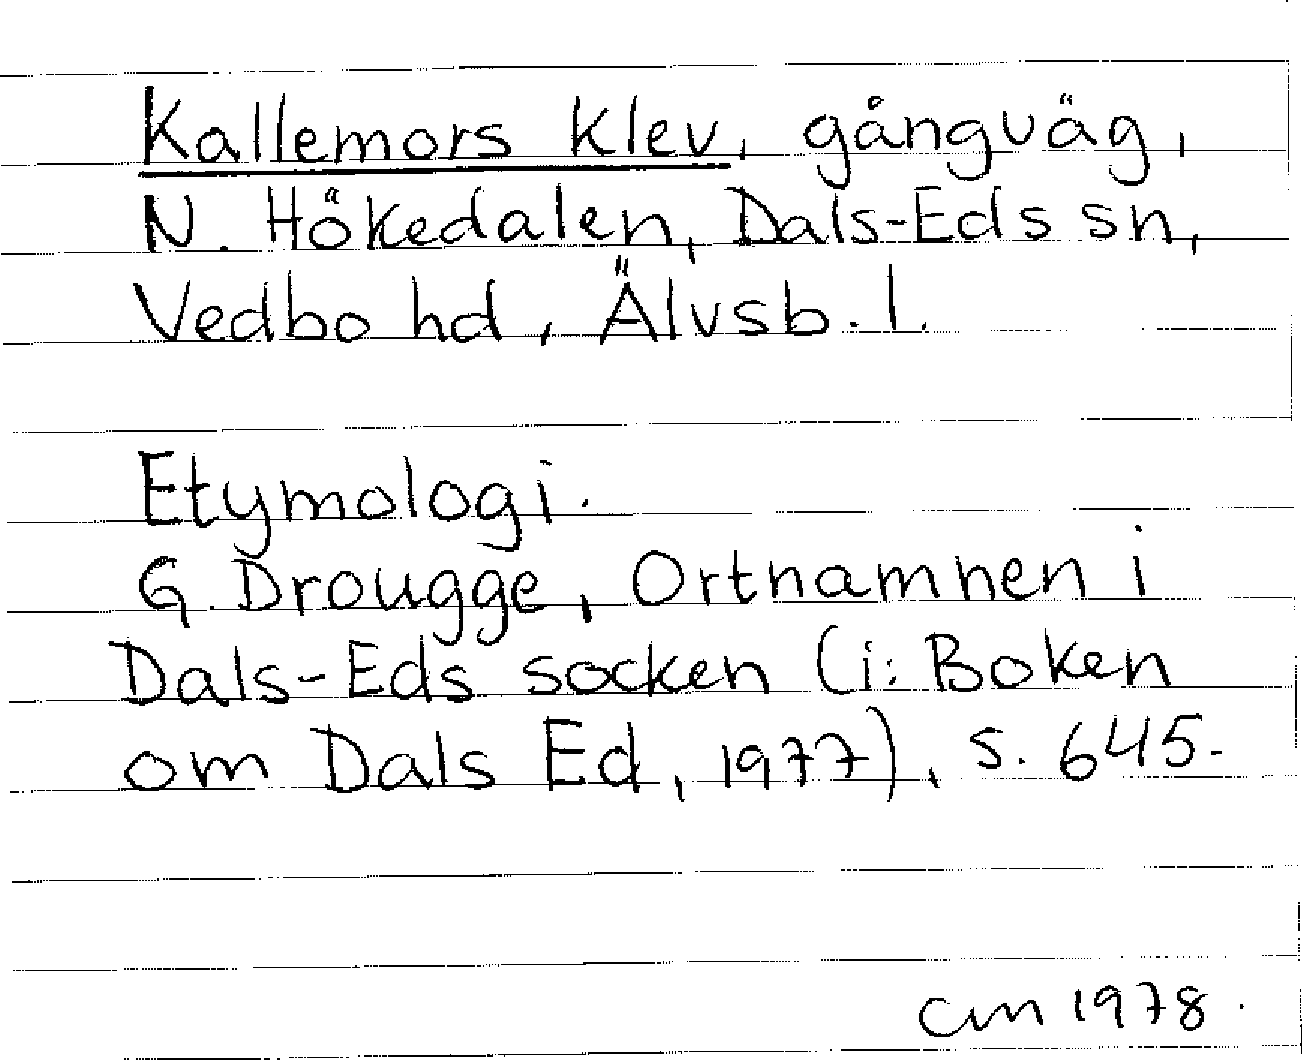 Kallemors klev, gångväg,
N. Hökedalen, Dals-Eds sn,
Vedbo hd, Älvsb. l.
Etymologi.
G. Drougge, Ortnamnen i
Dals-Eds socken (i: Boken
om Dals Ed, 1977), s. 645.
CM 1978.